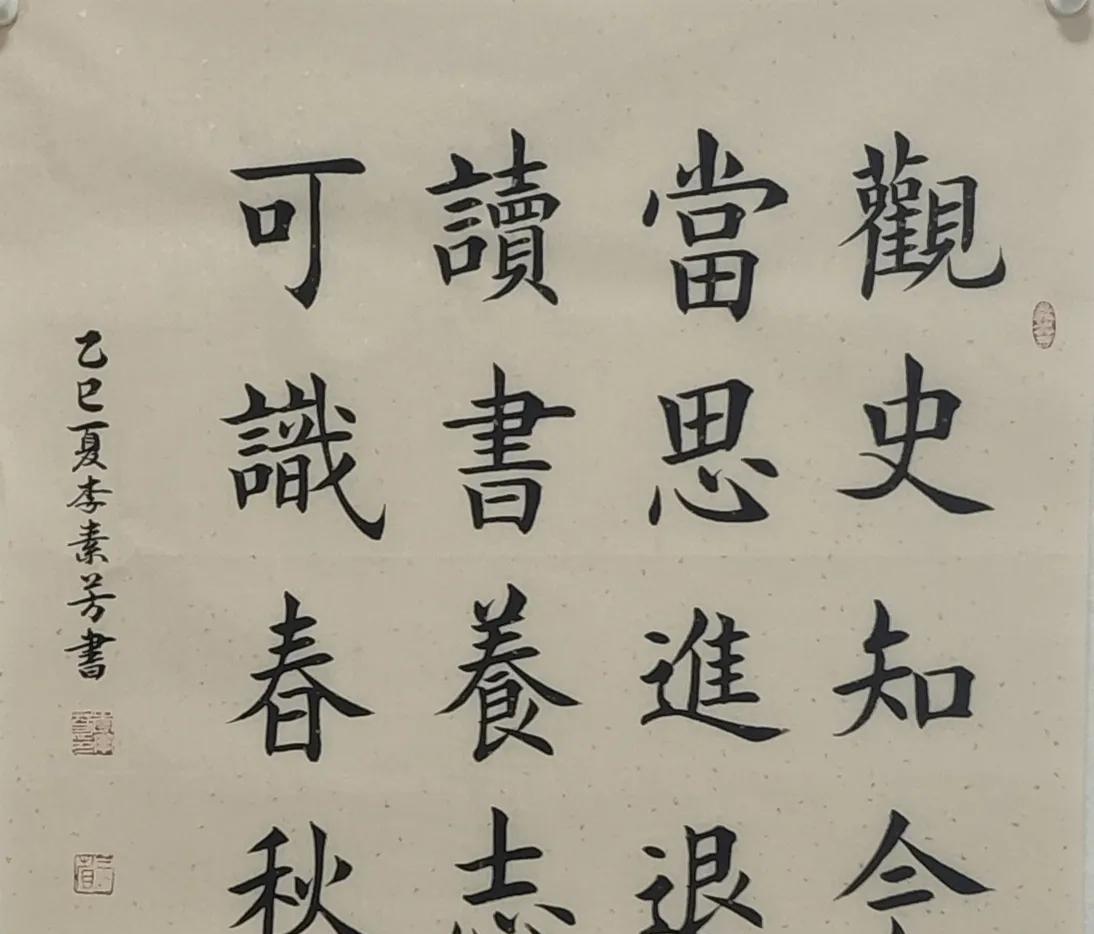 觀史知今
當思進退
讀書養志
可識春秋
乙巳夏李素芳書